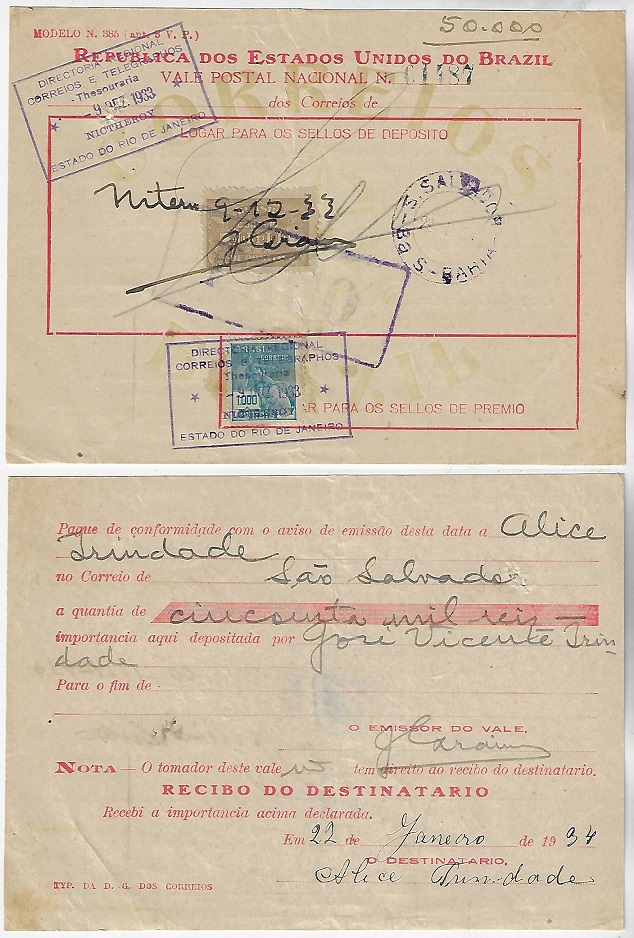 MODELO N. 385 (ant. 3 V. P.)
50.000
REPUBLICA DOS ESTADOS UNIDOS DO BRAZIL
VALE POSTAL NACIONAL N. 01487
dos Correios de
DIRECTORIA REGIONAL
CORREIOS E TELEGRAPHOS
Thesouraria
- 9 DEZ. 1933
NICTHEROY
ESTADO DO RIO DE JANEIRO
LOGAR PARA OS SELLOS DE DEPOSITO
9-12-33
S. SALVADOR
BAHIA
BRASIL
CORREIO
1000
DIRECTORIA REGIONAL
CORREIOS E TELEGRAPHOS
Thesouraria
- 9 DEZ. 1933
NICTHEROY
ESTADO DO RIO DE JANEIRO
AR PARA OS SELLOS DE PREMIO
Pague de conformidade com o aviso de emissão desta data a Alice
Trindade
no Correio de São Salvador
a quantia de cincoenta mil reis
importancia aqui depositada por José Vicente Trin
dade
Para o fim de -
O EMISSOR DO VALE,
NOTA — O tomador deste vale tem direito ao recibo do destinatario.
RECIBO DO DESTINATARIO
Recebi a importancia acima declarada.
Em 22 de Janeiro de 1934
O DESTINATARIO,
Alice Trindade
TYP. DA D. G. DOS CORREIOS